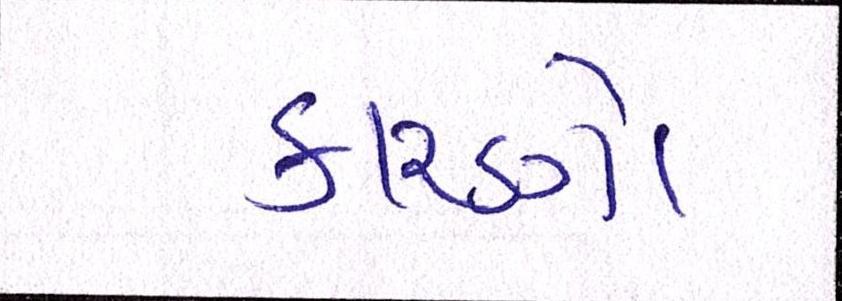 કારણો